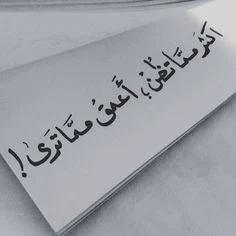 أكثر ممّا تظنّ، أعمقُ ممّا ترى!